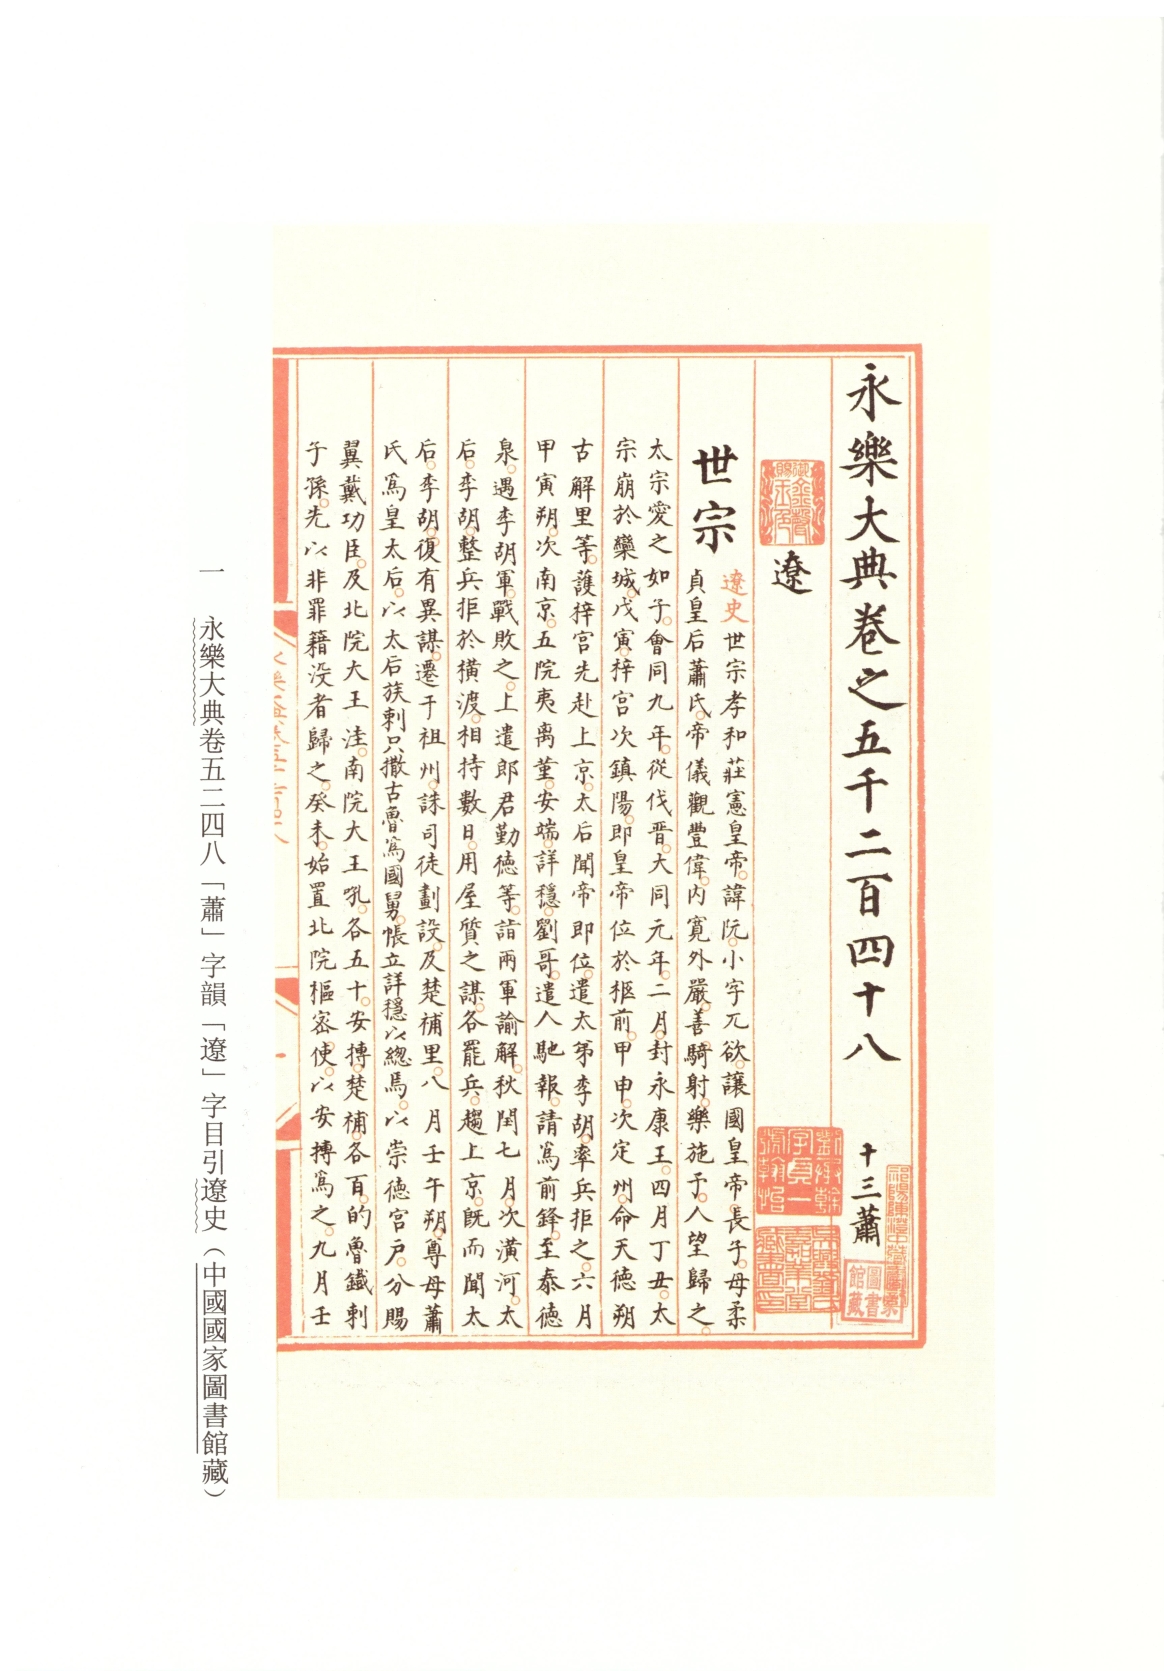 永樂大典卷之五千二百四十八 十三蕭
遼
世宗
遼史世宗孝和莊憲皇帝諱阮小字兀欲讓國皇帝長子母柔
貞皇后蕭氏帝儀觀豐偉内寬外嚴善騎射樂施予人望歸之
太宗愛之如子會同九年從伐晋大同元年二月封永康王四月丁丑太
宗崩於欒城戊寅梓宮次鎮陽即皇帝位於柩前甲申次定州命天德朔
古解里等護梓宮先赴上京太后聞帝即位遣太弟李胡率兵拒之六月
甲寅朔次南京五院夷离堇安端詳穩劉哥遣人馳報請爲前鋒至泰德
泉遇李胡軍戰敗之上遣郎君勤德等詣兩軍諭解秋閏七月次潢河太
后李胡整兵拒於橫渡相持數日用屋質之謀各罷兵趨上京既而聞太
后李胡復有異謀遷于祖州誅司徒劃設及楚補里八月壬午朔尊母蕭
氏爲皇太后以太后族剌只撒古魯爲國舅帳立詳穩以總焉以崇德宮户分賜
翼戴功臣及北院大王洼南院大王吼各五十安摶楚補各百的魯鐵剌
子孫先以非罪籍没者歸之癸未始置北院樞密使以安摶爲之九月壬
御賜金聲玉色
圖書館藏
一 永樂大典卷五二四八「蕭」字韻「遼」字目引遼史（中國國家圖書館藏）